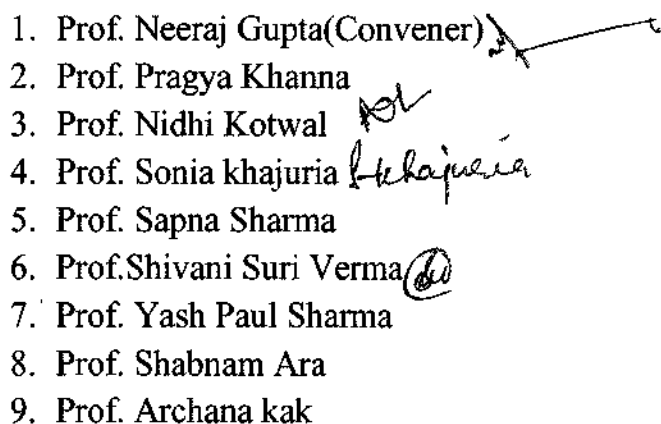 1. Prof. Neeraj Gupta(Convener)
2. Prof. Pragya Khanna
3. Prof. Nidhi Kotwal
4. Prof. Sonia khajuria Skhajuria
5. Prof. Sapna Sharma
6. Prof.Shivani Suri Verma
7. Prof. Yash Paul Sharma
8. Prof. Shabnam Ara
9. Prof. Archana kak